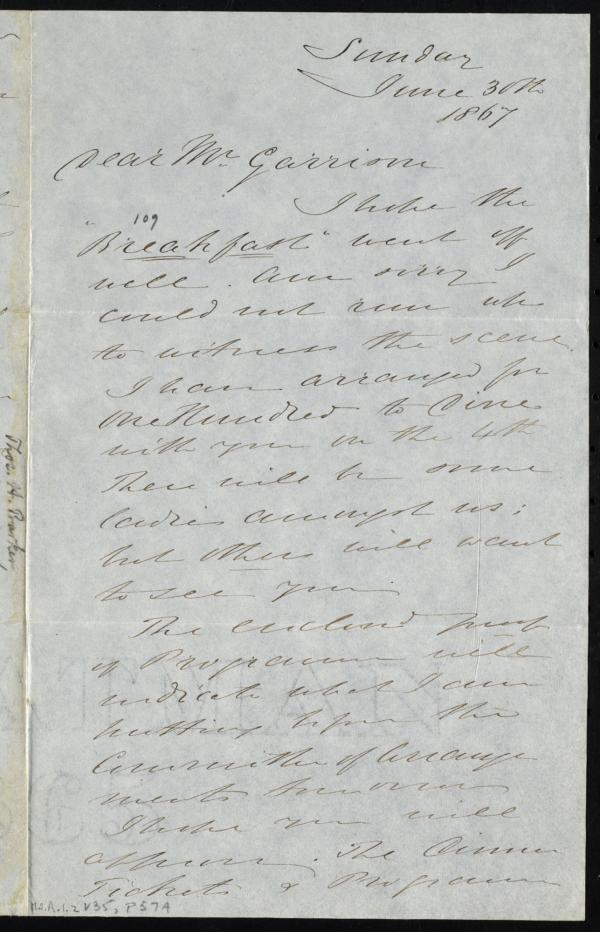 Sunday
June 30th
1867
Dear Mr. Garrison
I hope the
109
"Breakfast" went off
well. Am sorry I
could not run up
to witness the scene.
I have arranged for
One Hundred to Dine
with you on the 4th
There will be some
ladies amongst us;
but others will want
to see you.
The enclosed proof
of Programme will
indicate what I am
putting before the
Committee of Arrange
ments tomorrow
I hope you will
approve. The Dinner
Tickets & Programme
Thos. H. Barker
Ms.A.1.2 V35, P57A